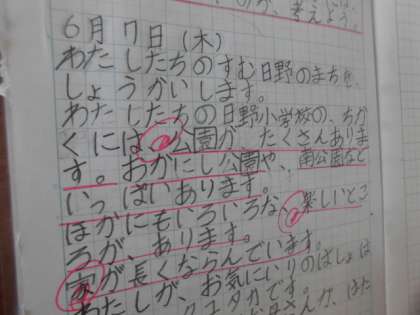 のが、考えよう。
6月7日(木)
わたしたちのすむ日野のまちを、
しょうかいします。
わたしたちの日野小学校の、ちか
くには、公園が、たくさんありま
す。おかにし公園や、南公園など
いっぱいあります。
ほかにもいろいろな、楽しいとこ
ろが、あります。
家が長くならんでいます。
わたしが、お気にいりのばしょは